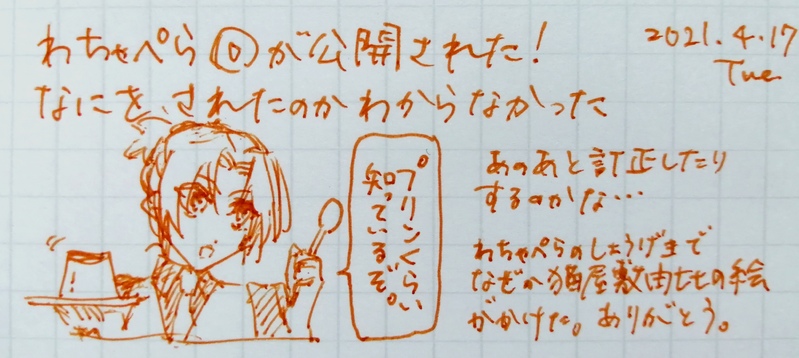 わちゃぺら⓪が公開された!
なにをされたのかわからなかった
2021.4.17
Tue
プリンくらい
知っているぞ。
あのあと訂正したり
するのかな…
わちゃぺらのしょうげきで
なぜか猫屋敷由七の絵
がかけた。ありがとう。